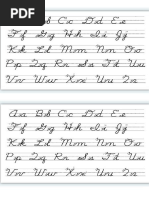 Bb Cc Dd Ee
Ff Gg Hh Ii Jj
Kk Ll Mm Nn Oo
Pp Qq Rr Ss Tt Uu
Vv Ww Xx Yy Zz
Aa Bb Cc Dd Ee
Ff Gg Hh Ii Jj
Kk Ll Mm Nn Oo
Pp Qq Rr Ss Tt Uu
Vv Ww Xx Yy Zz